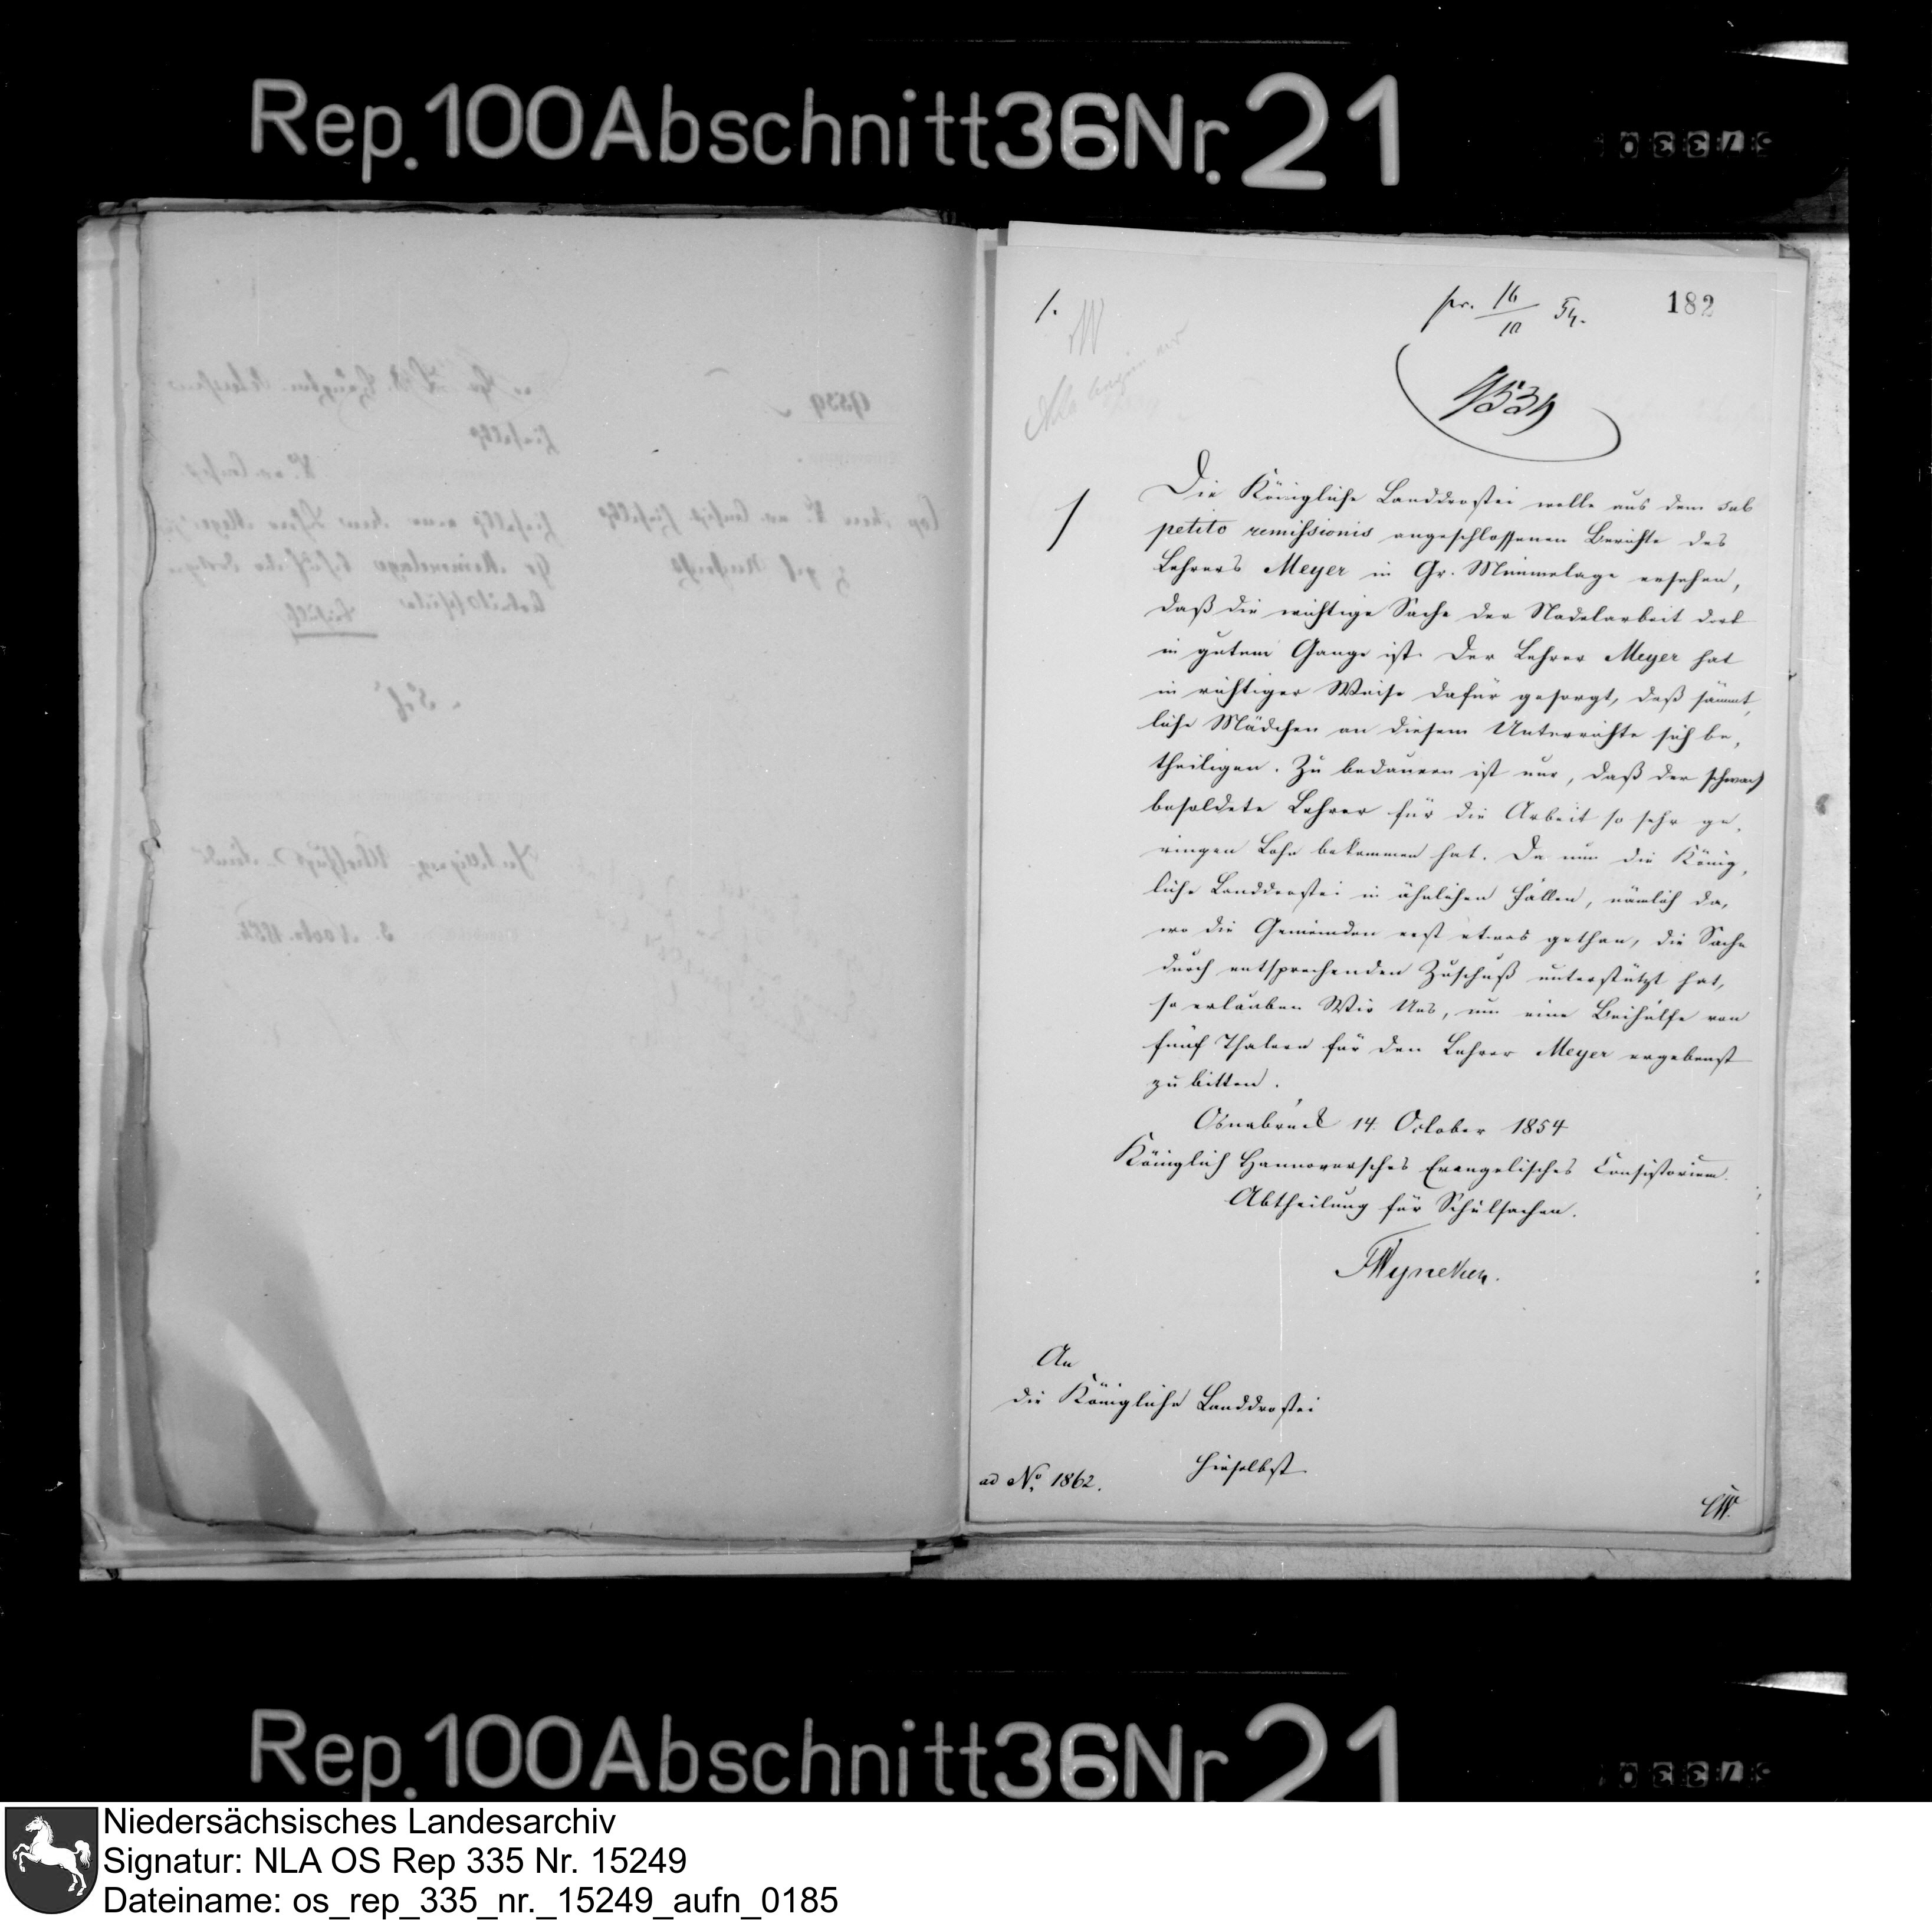 Rep. 100 Abschnitt 36 Nr. 21
1.
pr. 16/10 54.
182
9539
Die Königliche Landdrostei wolle aus dem sub
petito remissionis angeschlossenen Berichte des
Lehrers Meyer in Gr. Mimmelage ersehen,
daß die wichtige Sache der Nadelarbeit dort
in gutem Gange ist. Der Lehrer Meyer hat
in richtiger Weise dafür gesorgt, daß sämmt,
liche Mädchen an diesem Unterrichte sich be,
theiligen. Zu bedauern ist nur, daß der schwach
besoldete Lehrer für die Arbeit so sehr ge,
ringen Lohn bekommen hat. Da nun die König,
liche Landdrostei in ähnlichen Fällen, nämlich da,
wo die Gemeinden erst etwas gethan, die Sache
durch entsprechenden Zuschuß unterstützt hat,
so erlauben Wir Uns, um eine Beihülfe von
fünf Thalern für den Lehrer Meyer ergebenst
zu bitten.
Osnabrück 14. October 1854
Königlich Hannoversches Evangelisches Consistorium.
Abtheilung für Schulsachen.
TWyneken.
An
die Königliche Landdrostei
hieselbst
ad No. 1862.
Rep. 100 Abschnitt 36 Nr. 21
Niedersächsisches Landesarchiv
Signatur: NLA OS Rep 335 Nr. 15249
Dateiname: os_rep_335_nr._15249_aufn_0185